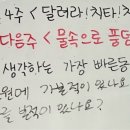 사주 < 달려라!치타!치
다음주 < 물속으로 풍덩
생각하는 가장 빠른동
원에 가본적이 있나요?
글 본적이 있나요?